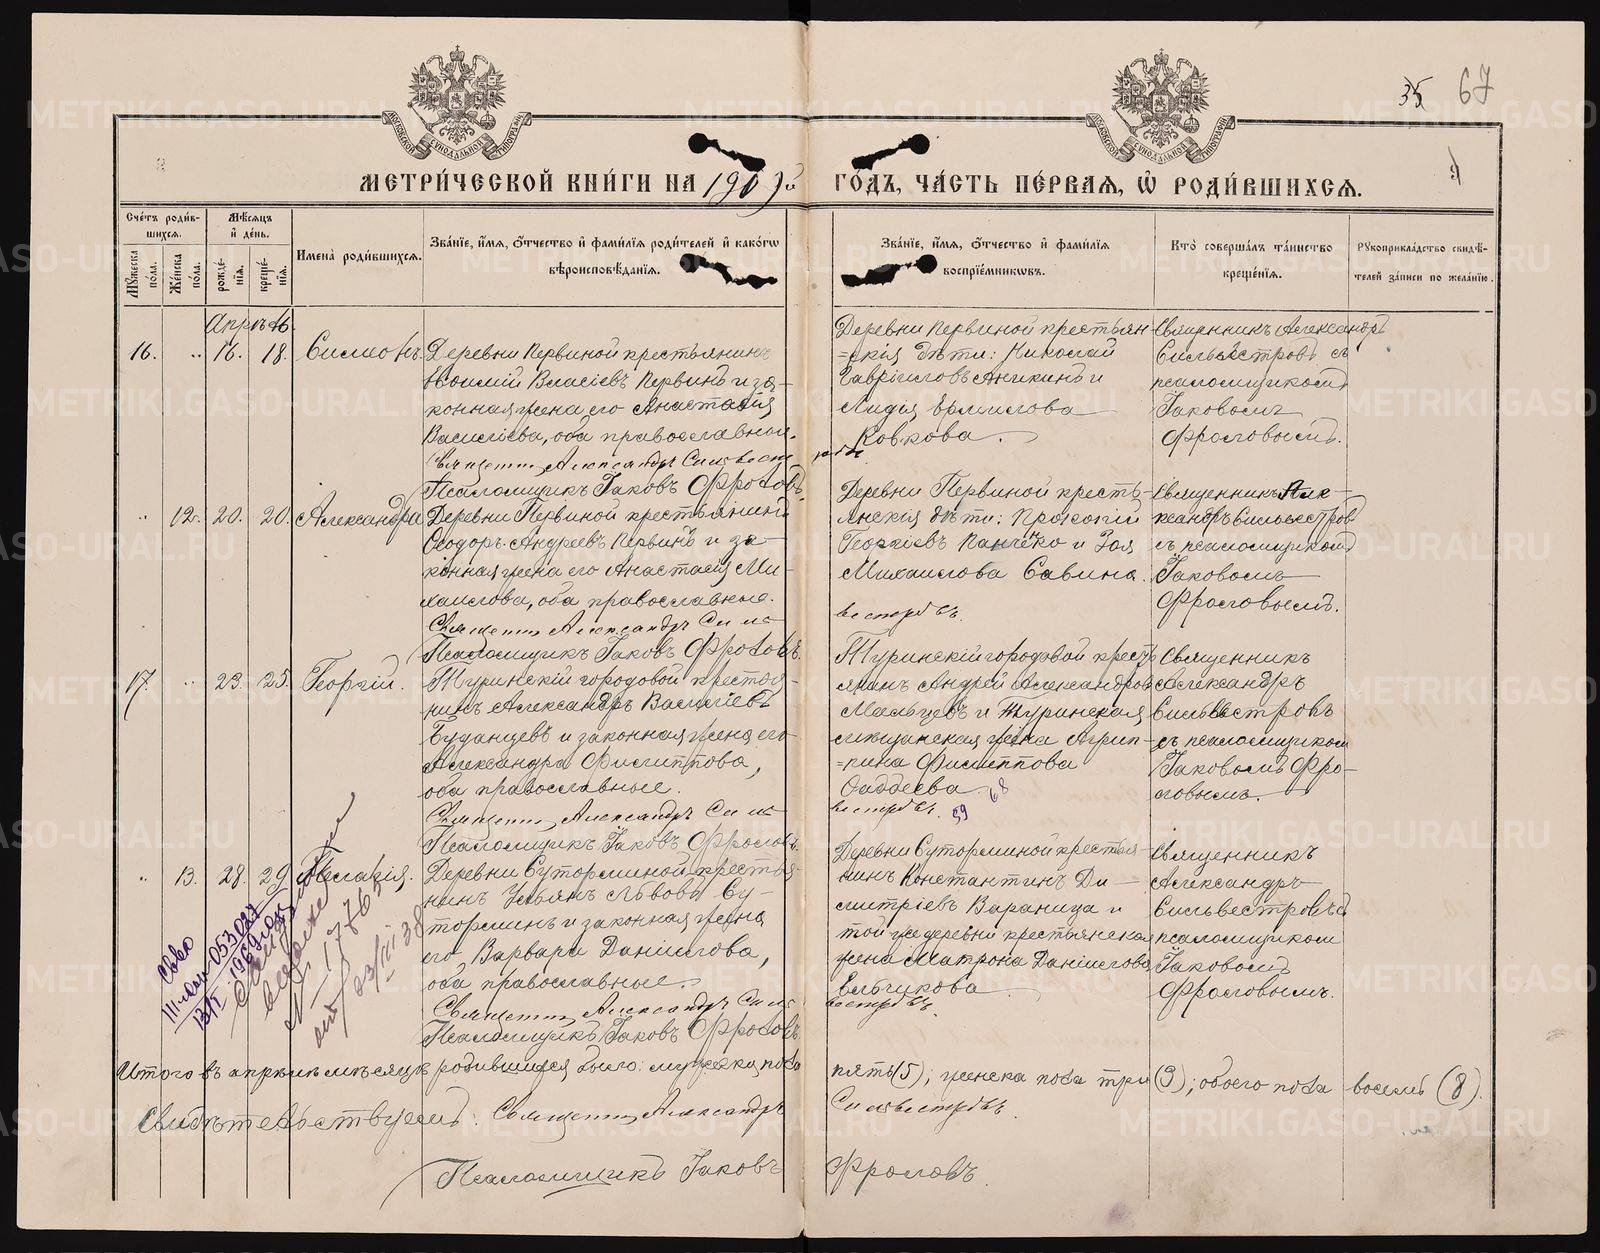 35 67
МОСКОВСКОЙ СѴНОДАЛЬНОЙ ТИПОГРАФІИ
МОСКОВСКОЙ СѴНОДАЛЬНОЙ ТИПОГРАФІИ
МЕТРИ́ЧЕСКОЙ КНИ́ГИ НА 1909й ГО́ДЪ, ЧА́СТЬ ПЕ́РВАЯ, Ѡ҆ РОДИ́ВШИХСѦ.
Сче́тъ роди́в-
шихсѧ.
Мꙋ́жеска по́ла.
Же́нска по́ла.
Мѣ́сѧцъ и҆ де́нь.
рожде́-нїѧ.
креще́-нїѧ.
Имена̀ роди́вшихсѧ.
Зва́нїе, и҆́мѧ, ѻ҆́тчество и҆ фами́лїѧ роди́телей и҆ како́гѡ
вѣроисповѣ́данїѧ.
Зва́нїе, и҆́мѧ, ѻ҆́тчество и҆ фами́лїѧ
воспрїе́мникѡвъ.
Кто̀ соверша́лъ та́инство
креще́нїѧ.
Рꙋкоприкла́дство свидѣ́-
телей за́писи по жела́нїю.
Апрѣль.
16. " 16. 18. Симеонъ.
Деревни Первиной крестьянинъ
Власіевъ Первинъ и за-
конная жена его Анастасія
Василіева, оба православные.
Священникъ Александръ Сильвестровъ
Псаломщикъ Іаковъ Фроловъ.
Деревни Первиной крестьян-
=скія дѣти: Николай
Гавріиловъ Аникинъ и
Лидія Ермилова
Ковкова.
Священникъ Александръ
Сильвестровъ съ
псаломщикомъ
Іаковомъ
Фроловымъ.
" 12. 20. 20. Александра
Деревни Первиной крестьянинъ
Ѳеодоръ Андреевъ Первинъ и за-
конная жена его Анастасія Ми-
хаилова, оба православные.
Священникъ Александръ Силь
вестровъ.
Псаломщикъ Іаковъ Фроловъ.
Деревни Первиной кресть-
янскія дѣти: Прокопій
Георгіевъ Панчёхо и Зоя
Михаилова Савина.
Священникъ Але-
ксандръ Сильвестровъ
съ псаломщикомъ
Іаковомъ
Фроловымъ.
17. " 23. 25. Георгій.
Туринскій городовой крестья-
нинъ Александръ Василіевъ
Буданцевъ и законная жена его
Александра Филиппова,
оба православные.
Священникъ Александръ Силь
вестровъ. 59 68
Псаломщикъ Іаковъ Фроловъ.
Туринскій городовой кресть-
янинъ Андрей Александровъ
Мальцевъ и Туринская
мѣщанская жена Агрип-
=пина Филиппова
Ѳаддеева
Священникъ
Александръ
Сильвестровъ
съ псаломщикомъ
Іаковомъ Фро-
ловымъ.
" 13. 28. 29. Пелагія.
Деревни Сутороминой крестья-
нинъ Ульянъ Львовъ Су-
торминъ и законная жена
его Варвара Даніилова,
оба православные.
Священникъ Александръ Силь
вестровъ.
Псаломщикъ Іаковъ Фроловъ.
Деревни Сутороминой крестья-
нинъ Константинъ Ди-
митріевъ Вараница и
той же деревни крестьянская
жена Матрона Даніилова
Ельчикова
Священникъ
Александръ
Сильвестровъ съ
псаломщикомъ
Іаковомъ
Фроловымъ.
23/III 38
Итого въ апрѣлѣ мѣсяцѣ родившихся было: мужска пола пять (5); женска пола три (3); обоего пола восемь (8).
Свидѣтельствуемъ: Священникъ Александръ Сильвестровъ.
Псаломщикъ Іаковъ Фроловъ.
METRIKI.GASO-URAL.RU